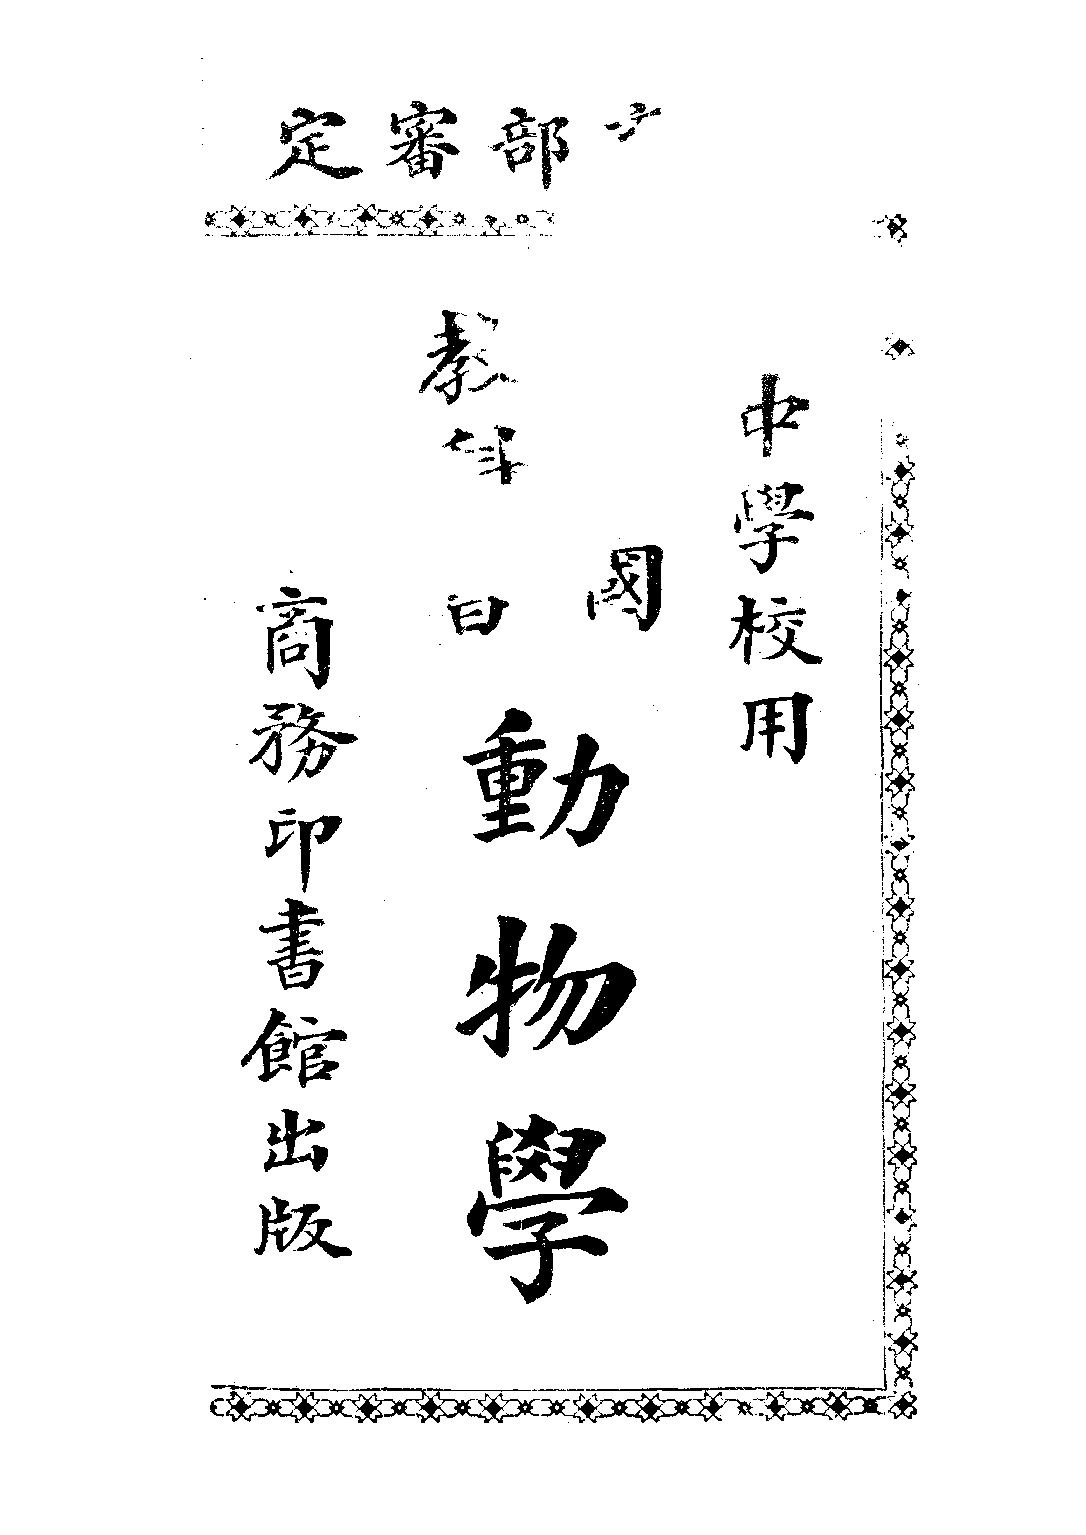 部審定
中學校用
國
教
動物學
商務印書館出版